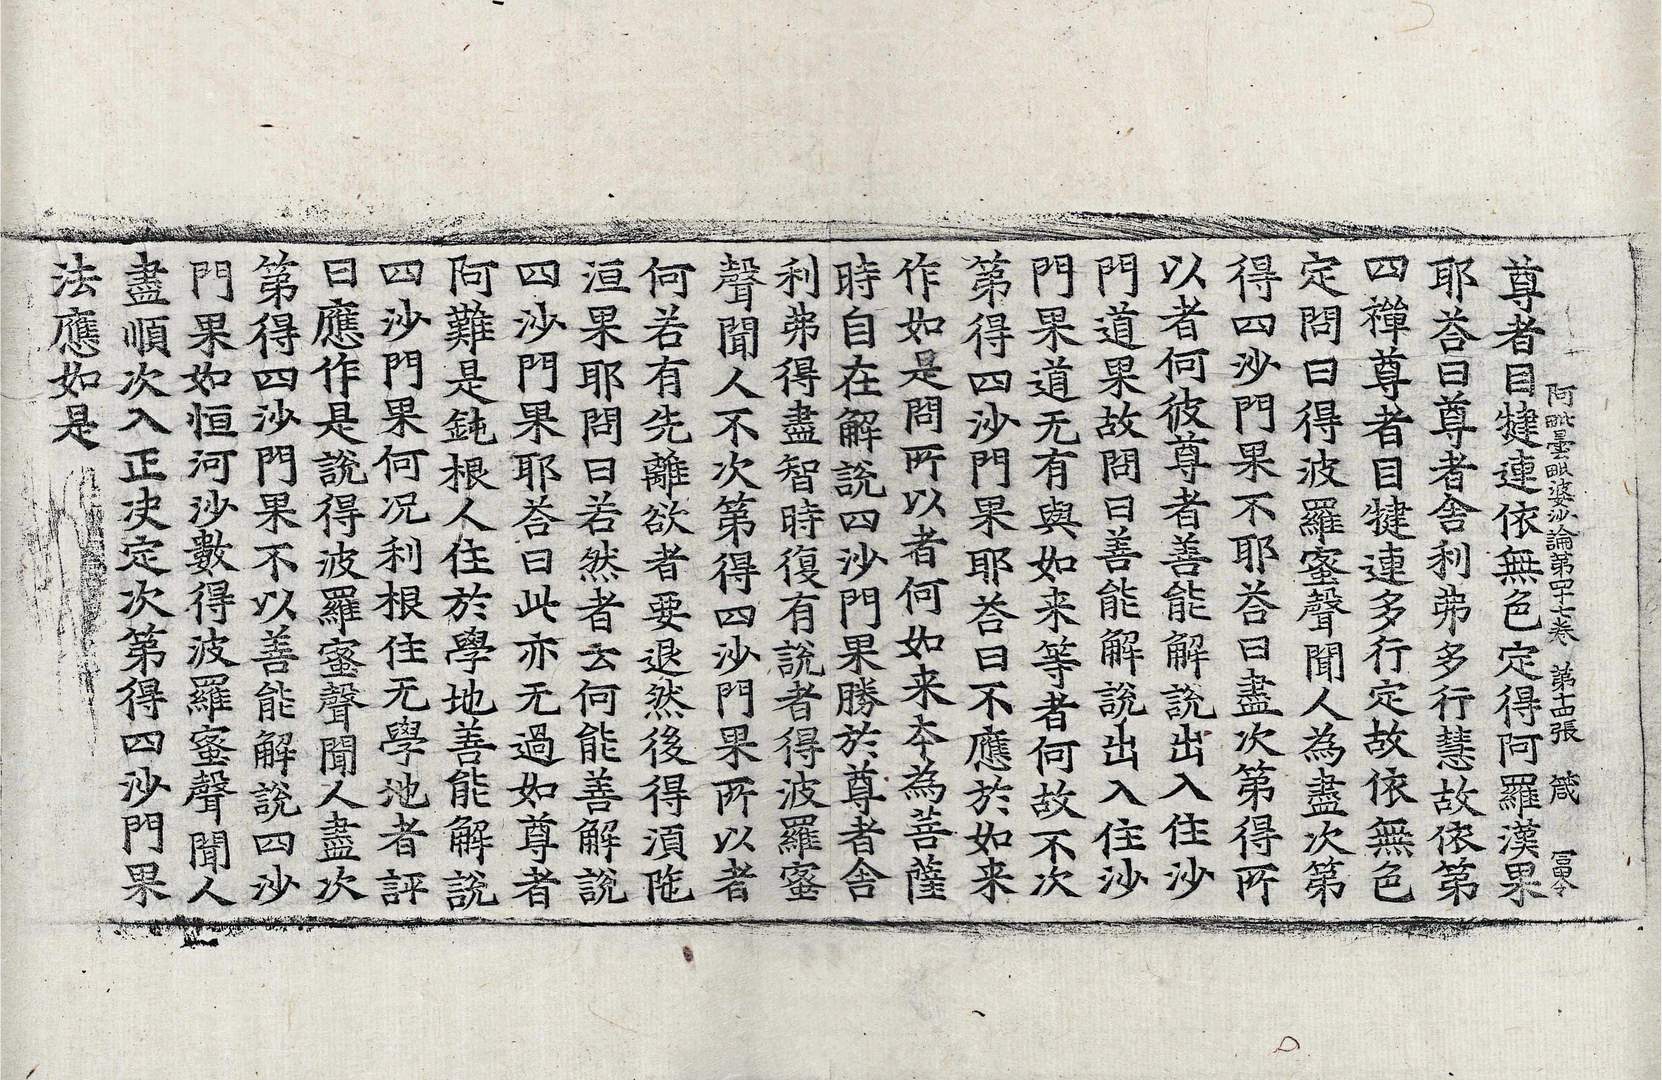 阿毗曇毗婆沙論第四十七卷 第十四張 箴 冨令
尊者目犍連依無色定得阿羅漢果
耶荅曰尊者舍利弗多行慧故依第
四禪尊者目犍連多行定故依無色
定問曰得波羅蜜聲聞人為盡次第
得四沙門果不耶荅曰盡次第得所
以者何彼尊者善能解說出入住沙
門道果故問曰善能解說出入住沙
門果道无有與如来等者何故不次
第得四沙門果耶荅曰不應於如来
作如是問所以者何如来本為菩薩
時自在解說四沙門果勝於尊者舍
利弗得盡智時復有說者得波羅蜜
聲聞人不次第得四沙門果所以者
何若有先離欲者要退然後得湏陁
洹果耶問曰若然者云何能善解說
四沙門果耶荅曰此亦无過如尊者
阿難是鈍根人住於學地善能解說
四沙門果何况利根住无學地者評
曰應作是說得波羅蜜聲聞人盡次
第得四沙門果不以善能解說四沙
門果如恒河沙數得波羅蜜聲聞人
盡順次入正决定次第得四沙門果
法應如是